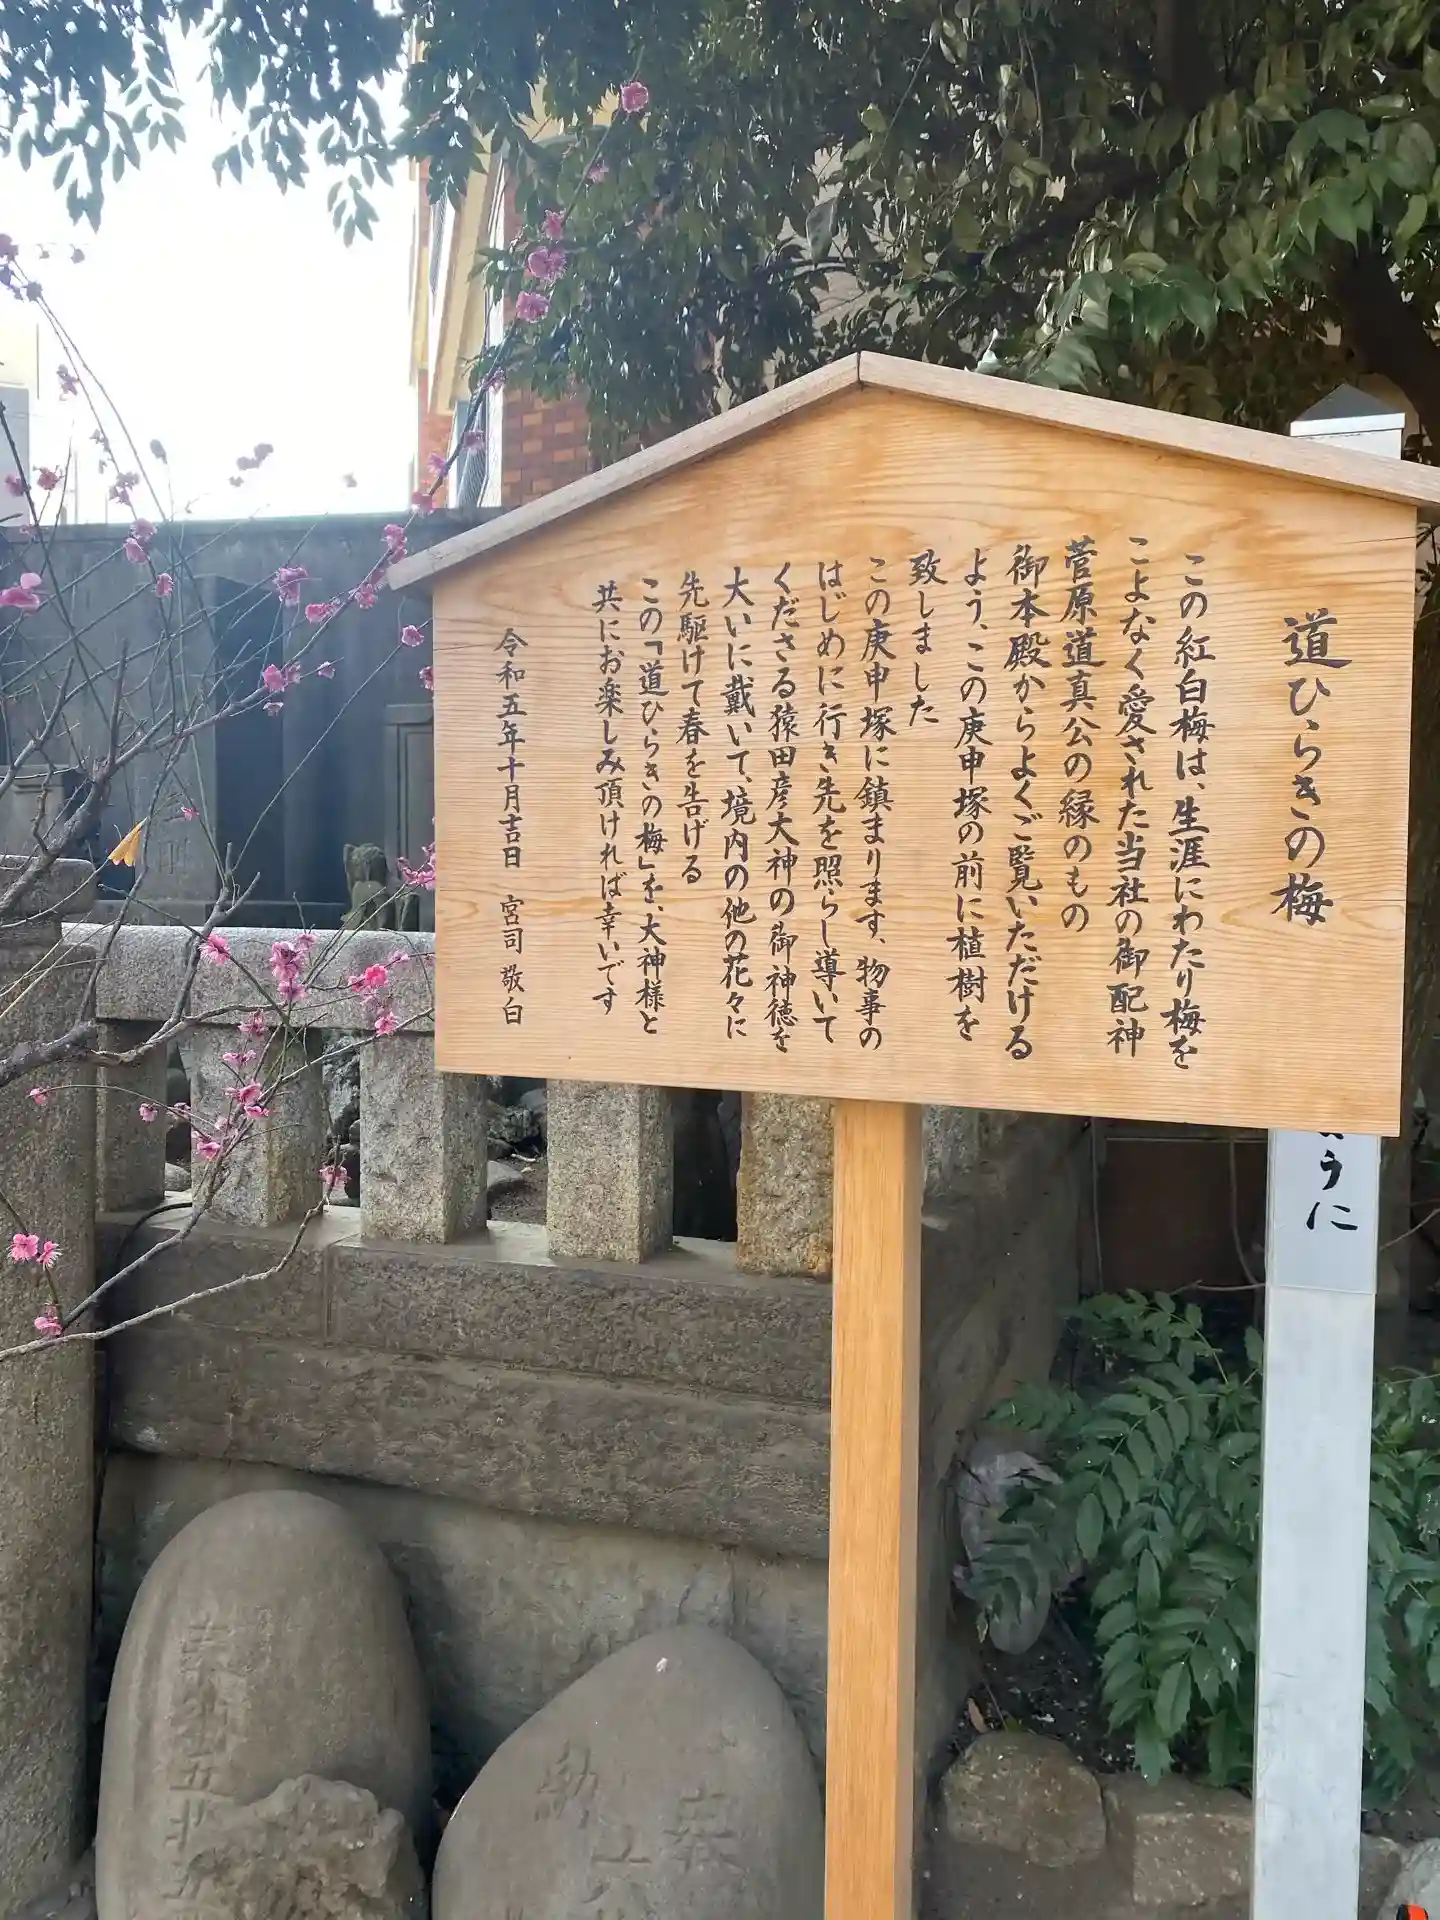 道ひらきの梅
この紅白梅は、生涯にわたり梅を
こよなく愛された当社の御配神
菅原道真公の縁のもの
御本殿からよくご覧いただける
よう、この庚申塚の前に植樹を
致しました
この庚申塚に鎮まります、物事の
はじめに行き先を照らし導いて
くださる猿田彦大神の御神徳を
大いに戴いて、境内の他の花々に
先駆けて春を告げる
この「道ひらきの梅」を、大神様と
共にお楽しみ頂ければ幸いです
令和五年十月吉日 宮司 敬白
うに
奉
納